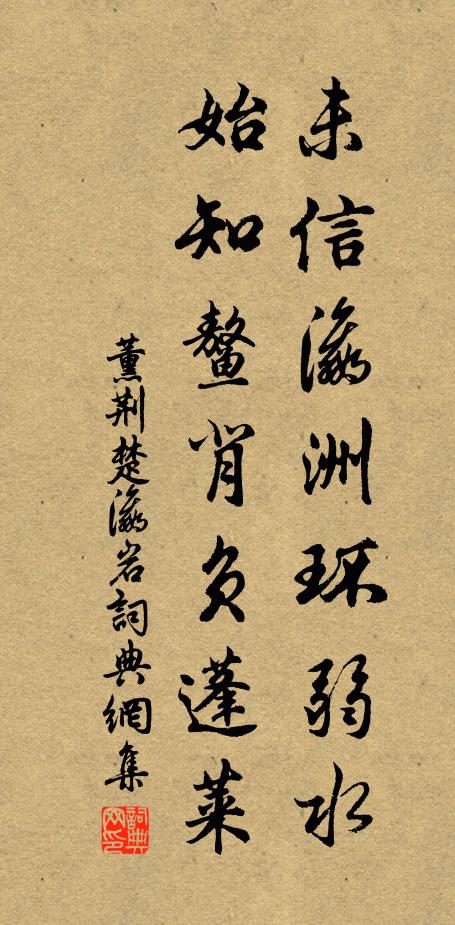 未信瀛洲环弱水
始知鳌背负蓬莱
薰荆楚瀛岩词典网集
词典网印